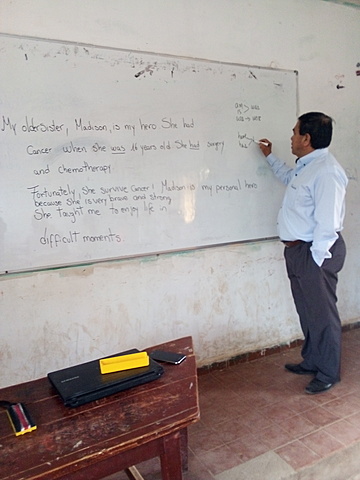 My older Sister, Madison, is my hero She had
Cancer when she was 16 years old She had surgery
and chemotherapy.
Fortunately, she survive Cancer! Madison is my personal hero
because she is very brave and strong
She taught me to enjoy life in
difficult moments.
am > was
is
are → were
have
has